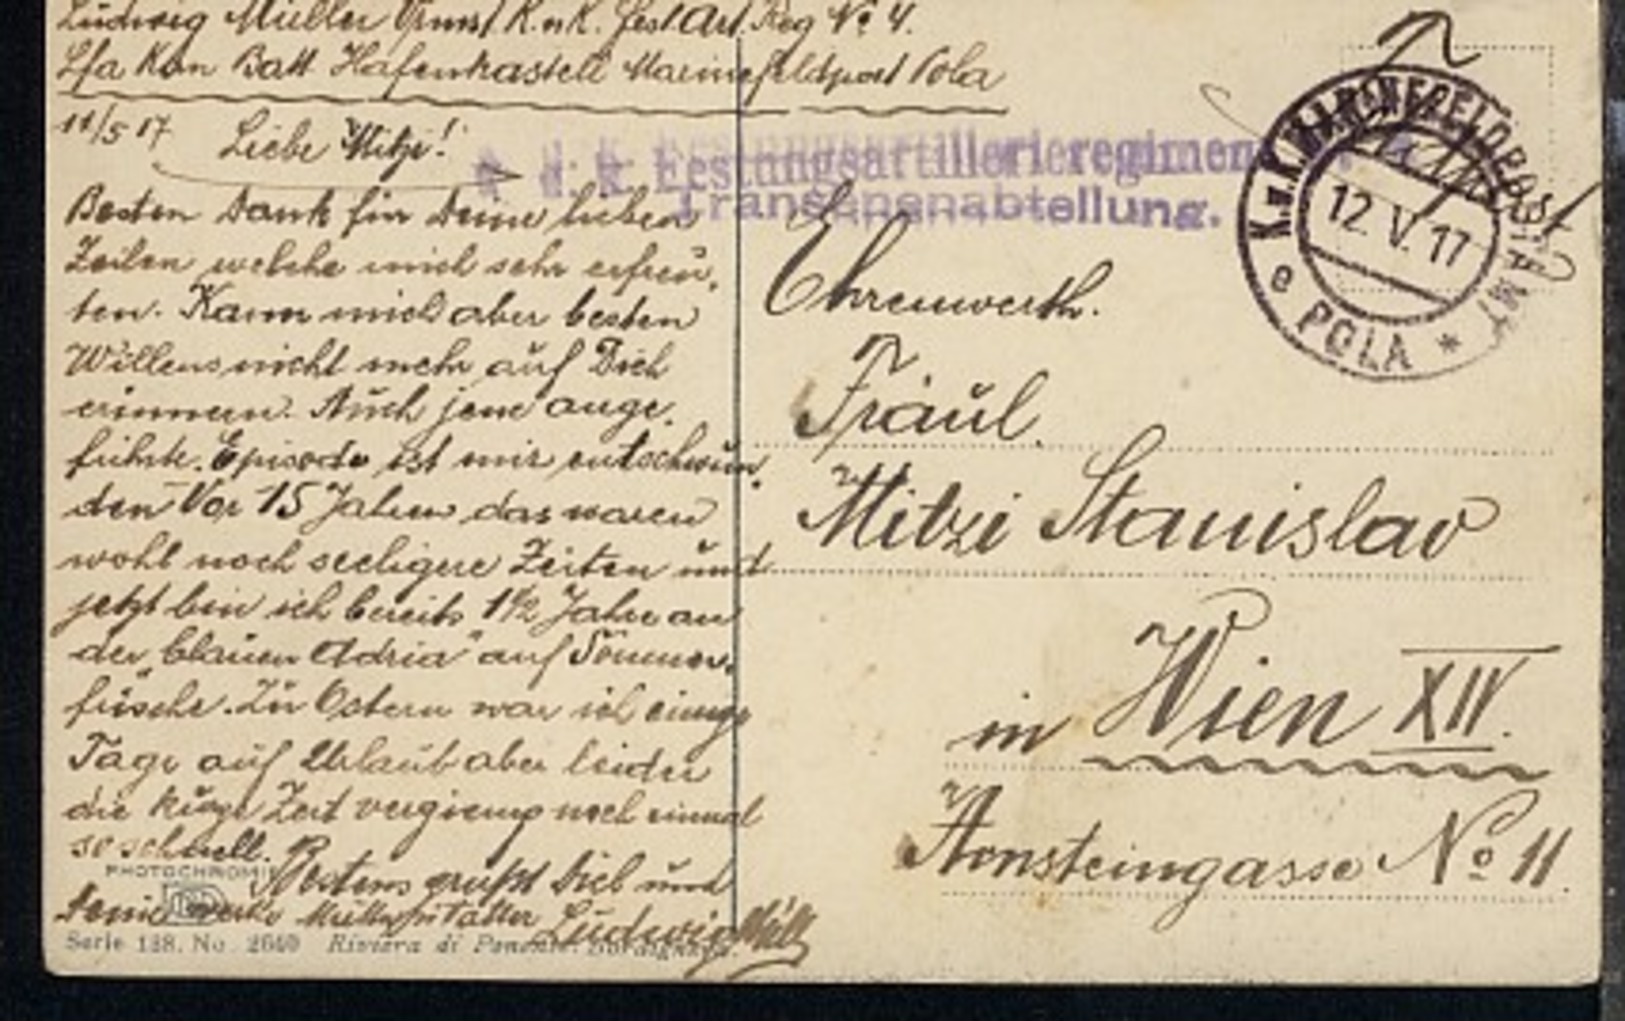 Ludwig Müller K.u.K. Fest Art. Reg No 4.
Batt Hafenkastell Marinefeldpost Pola
11/5 17
Liebe Mitzi!
Festungsartillerieregiment
Transenenabteilung.
K.u.K. MARINEFELDPOSTAMT
12. V. 17
e POLA *
Besten Dank für Deine lieben
Zeilen welche mich sehr erfreu-
ten. Kann mich aber besten
Willens nicht mehr auf Dich
erinnern. Auch jene ange-
führte Episode ist mir entschwun-
den Vor 15 Jahren das waren
wohl noch seeligere Zeiten und
jetzt bin ich bereits 1½ Jahre an
der „blauen Adria" auf Sommer-
frische. Zu Ostern war ich einige
Tage auf Urlaub aber leider
die kurze Zeit vergieng noch einmal
so schnell.
Bestens grüßt Dich und
Deine werte Mutter Ludwig Müll
Ehrenwerth.
Fräul.
Mitzi Stanislav
in Wien XIV.
Arnsteingasse No 11.
PHOTOCHROMIE
Serie 138. No. 2640 Riviera di Ponente. Bordighera.